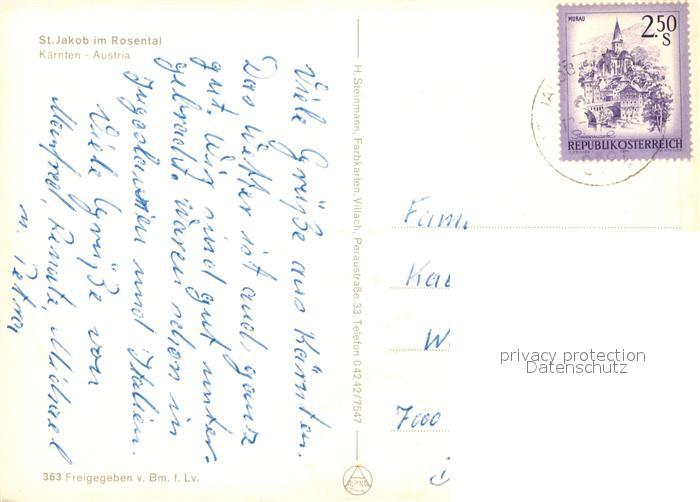 St. Jakob im Rosental
Kärnten - Austria
Viele Grüße aus Kärnten.
Das Wetter ist auch ganz
gut. Wir sind gut unter-
gebracht. Waren schon in
Jugoslawien und Italien.
Viele Grüße von
Manfred, Renate, Michael
u. Petra
363 Freigegeben v. Bm. f. Lv.
H. Steinmann, Farbkarten, Villach, Peraustraße 33, Telefon 04242/7547
ALPINA
MURAU
2.50
S
REPUBLIK ÖSTERREICH
Fam
Ka
W
7000
privacy protection
Datenschutz